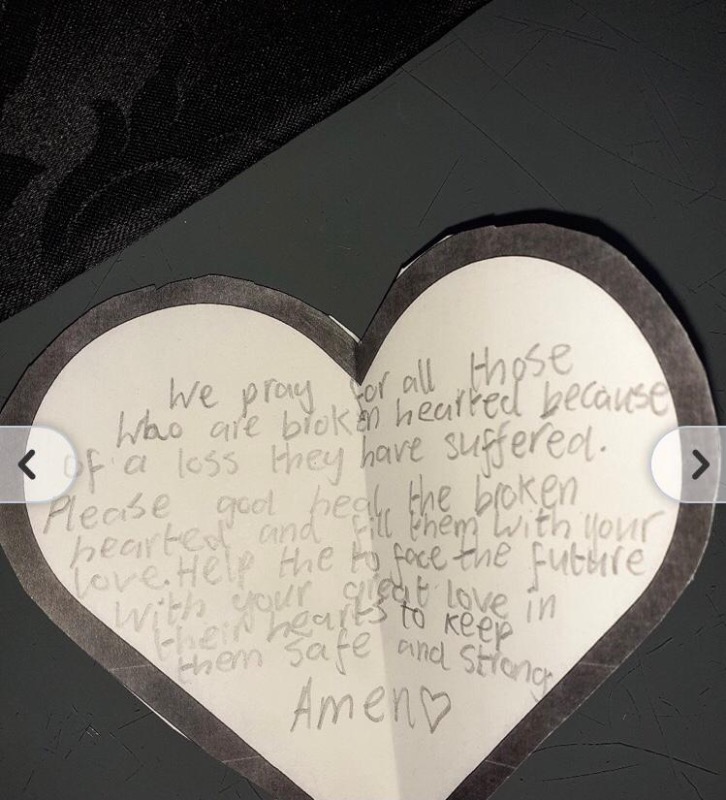 We pray for all those
who are broken hearted because
of a loss they have suffered.
Please god heal the broken
hearted and fill them with your
love. Help the to face the future
with your great love in
their hearts to keep
them safe and strong
Amen♡